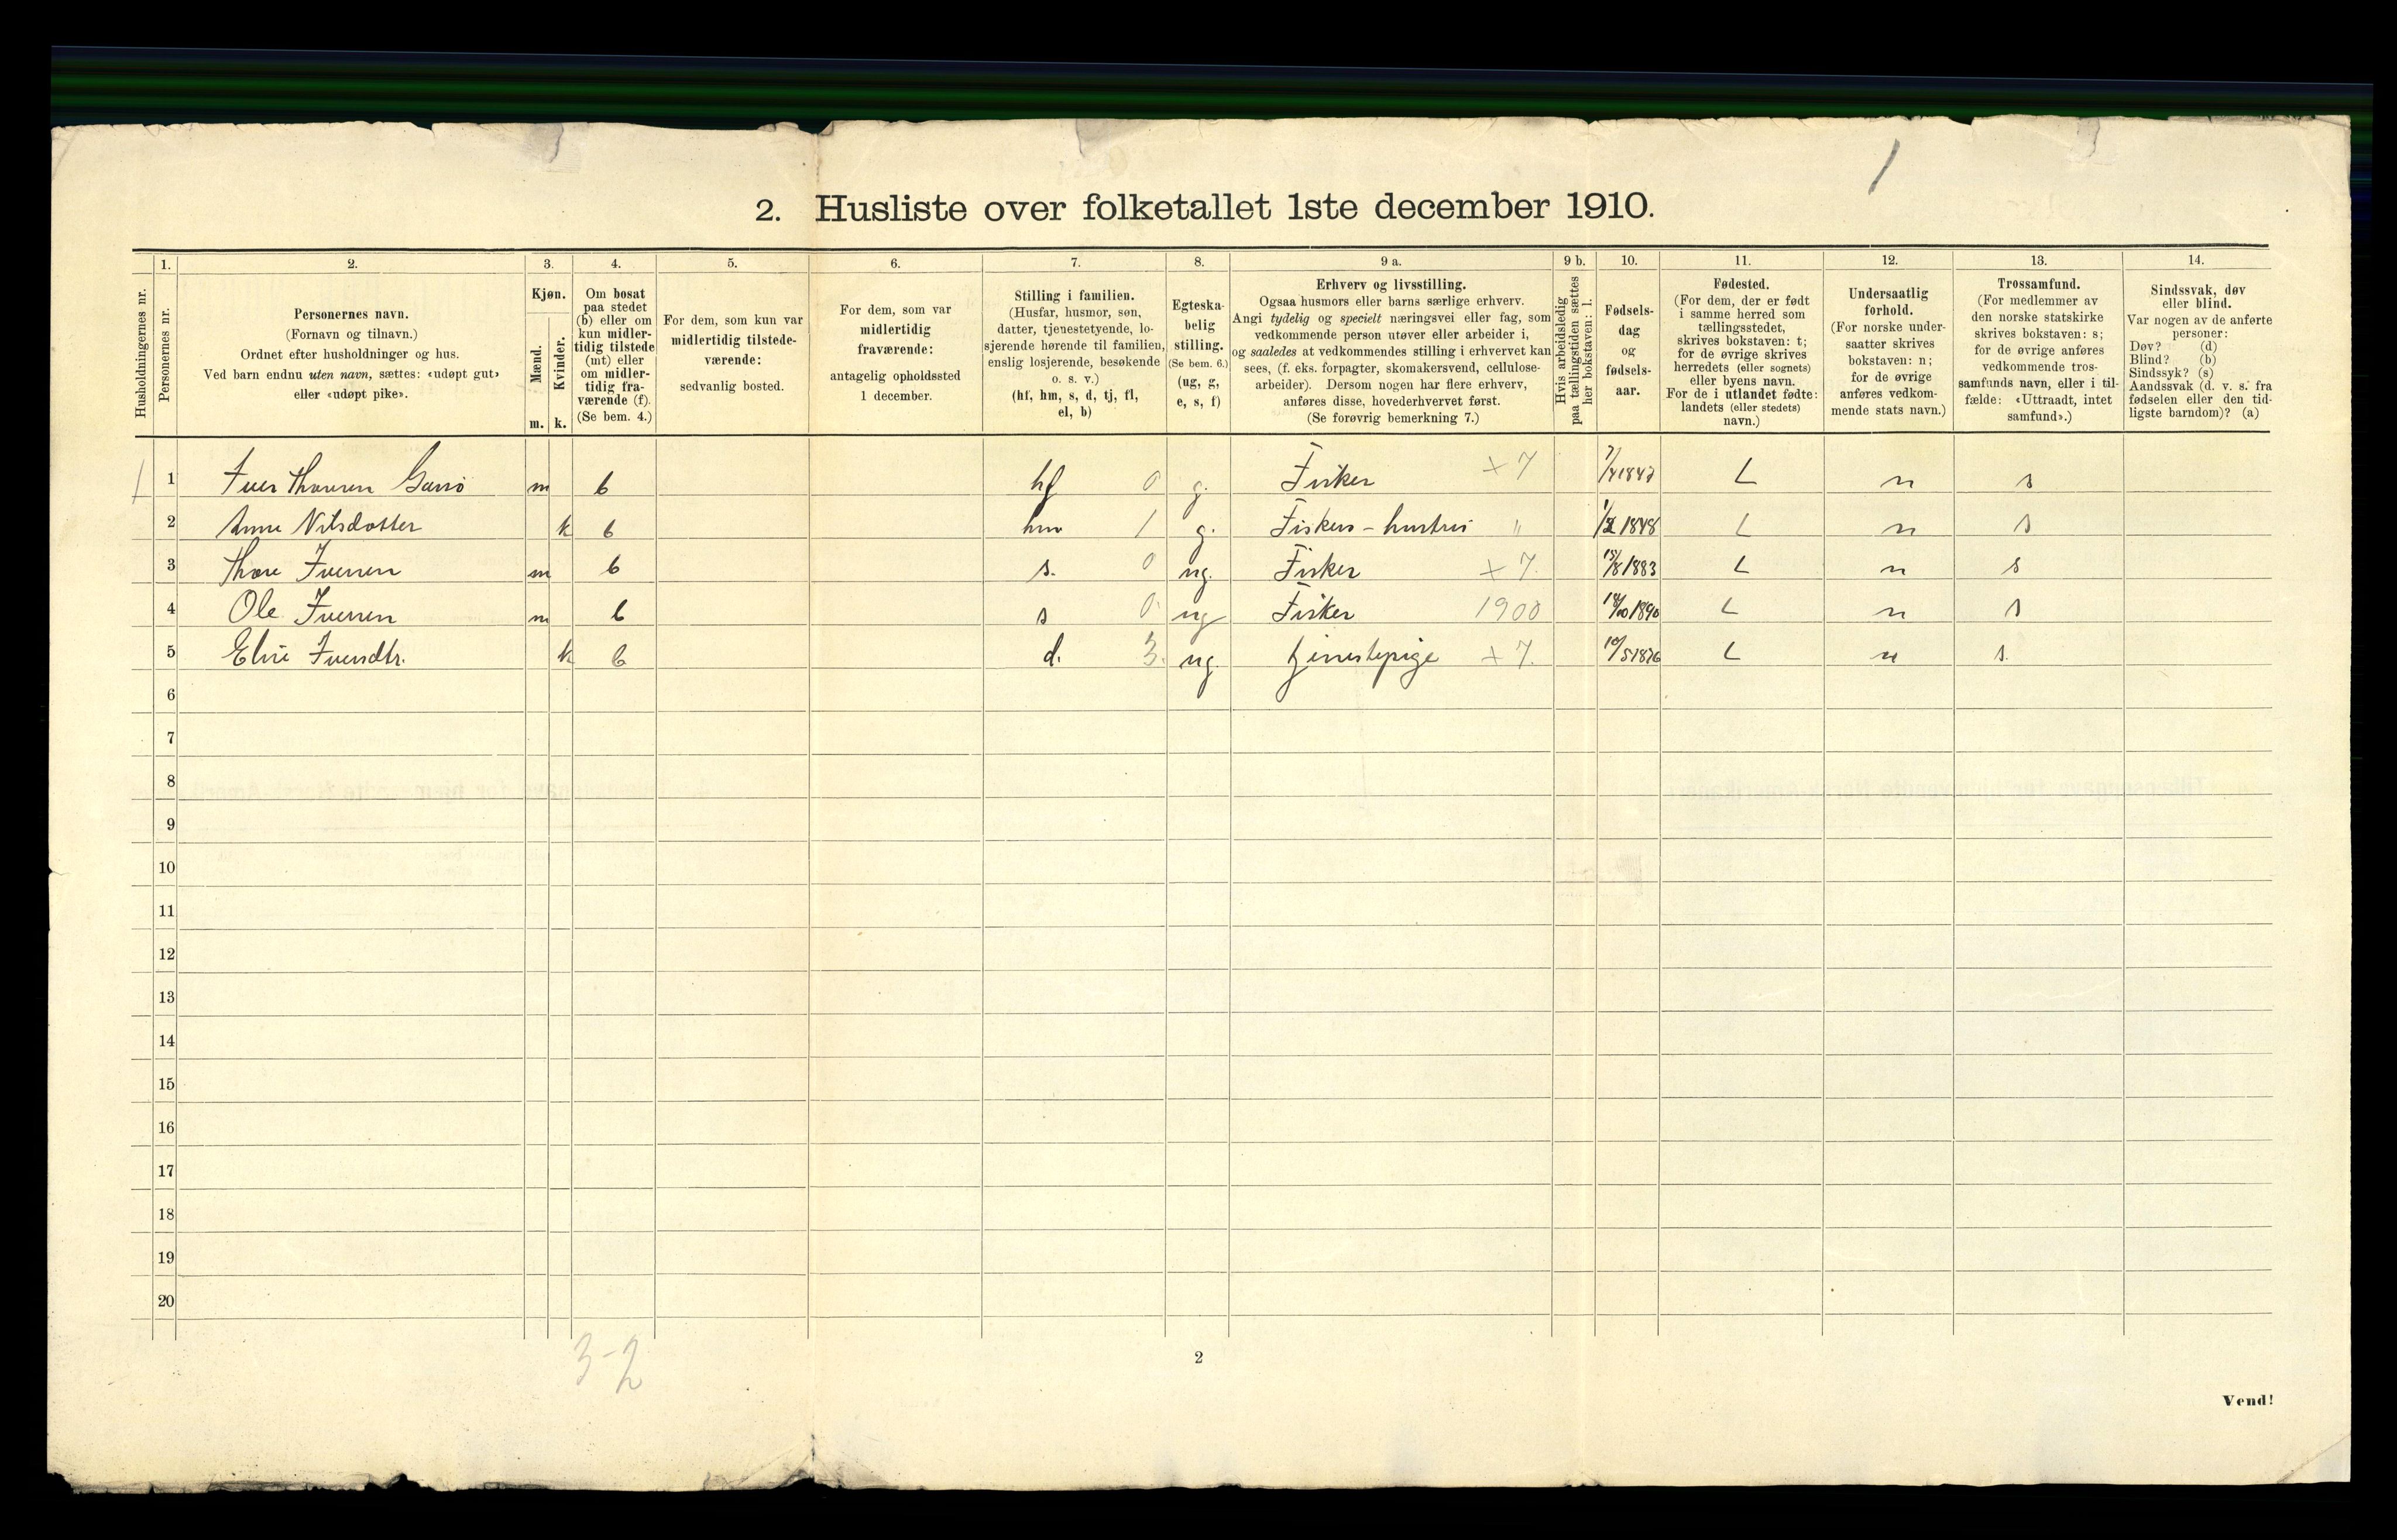 1
2. Husliste over folketallet 1ste december 1910.
Husholdningernes nr.
1.
Personernes nr.
2.
Personernes navn.
(Fornavn og tilnavn.)
Ordnet efter husholdninger og hus.
Ved barn endnu uten navn, sættes: «udøpt gut»
eller «udøpt pike».
3.
Kjøn.
Mænd.
Kvinder.
m. k.
4.
Om bosat
paa stedet
(b) eller om
kun midler-
tidig tilstede
(mt) eller
om midler-
tidig fra-
værende (f).
(Se bem. 4.)
5.
For dem, som kun var
midlertidig tilstede-
værende:
sedvanlig bosted.
6.
For dem, som var
midlertidig
fraværende:
antagelig opholdssted
1 december.
7.
Stilling i familien.
(Husfar, husmor, søn,
datter, tjenestetyende, lo-
sjerende hørende til familien,
enslig losjerende, besøkende
o. s. v.)
(hf, hm, s, d, tj, fl,
el, b)
8.
Egteska-
belig
stilling.
(Se bem. 6.)
(ug, g,
e, s, f)
9 a.
Erhverv og livsstilling.
Ogsaa husmors eller barns særlige erhverv.
Angi tydelig og specielt næringsvei eller fag, som
vedkommende person utøver eller arbeider i,
og saaledes at vedkommendes stilling i erhvervet kan
sees, (f. eks. forpagter, skomakersvend, cellulose-
arbeider). Dersom nogen har flere erhverv,
anføres disse, hovederhvervet først.
(Se forøvrig bemerkning 7.)
9 b.
Hvis arbeidsledig
paa tællingstiden sættes
her bokstaven: l.
10.
Fødsels-
dag
og
fødsels-
aar.
11.
Fødested.
(For dem, der er født
i samme herred som
tællingsstedet,
skrives bokstaven: t;
for de øvrige skrives
herredets (eller sognets)
eller byens navn.
For de i utlandet fødte:
landets (eller stedets)
navn.)
12.
Undersaatlig
forhold.
(For norske under-
saatter skrives
bokstaven: n;
for de øvrige
anføres vedkom-
mende stats navn.)
13.
Trossamfund.
(For medlemmer av
den norske statskirke
skrives bokstaven: s;
for de øvrige anføres
vedkommende tros-
samfunds navn, eller i til-
fælde: «Uttraadt, intet
samfund».)
14.
Sindssvak, døv
eller blind.
Var nogen av de anførte
personer:
Døv? (d)
Blind? (b)
Sindssyk? (s)
Aandssvak (d. v. s. fra
fødselen eller den tid-
ligste barndom)? (a)
1 1 Iver Thoresen m b hf 0 g. Fisker x 7 t n s
2 Anne Nilsdotter k b hm 1 g. Fiskers-hustru " 1848 t n s
3 Thore Iversen m b s. 0 ug. Fisker x 7. 15/8 1883 t n s
4 Ole Iversen m b s 0 ug Fisker 1900 1890 t n s
5 Eline Iversdtr. k b d. 3. ug. tjenestepige x 7. 10/5 1876 t n s.
6
7
8
9
10
11
12
13
14
15
16
17
18
19
20
3-2
2
Vend!